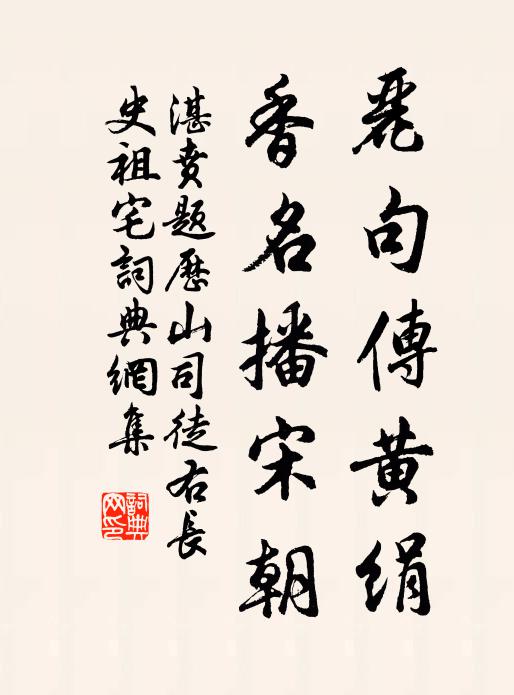 麗句傳黄絹
香名播宋朝
湛賁題歷山司徒右長
史祖宅詞典網集
詞典
网印